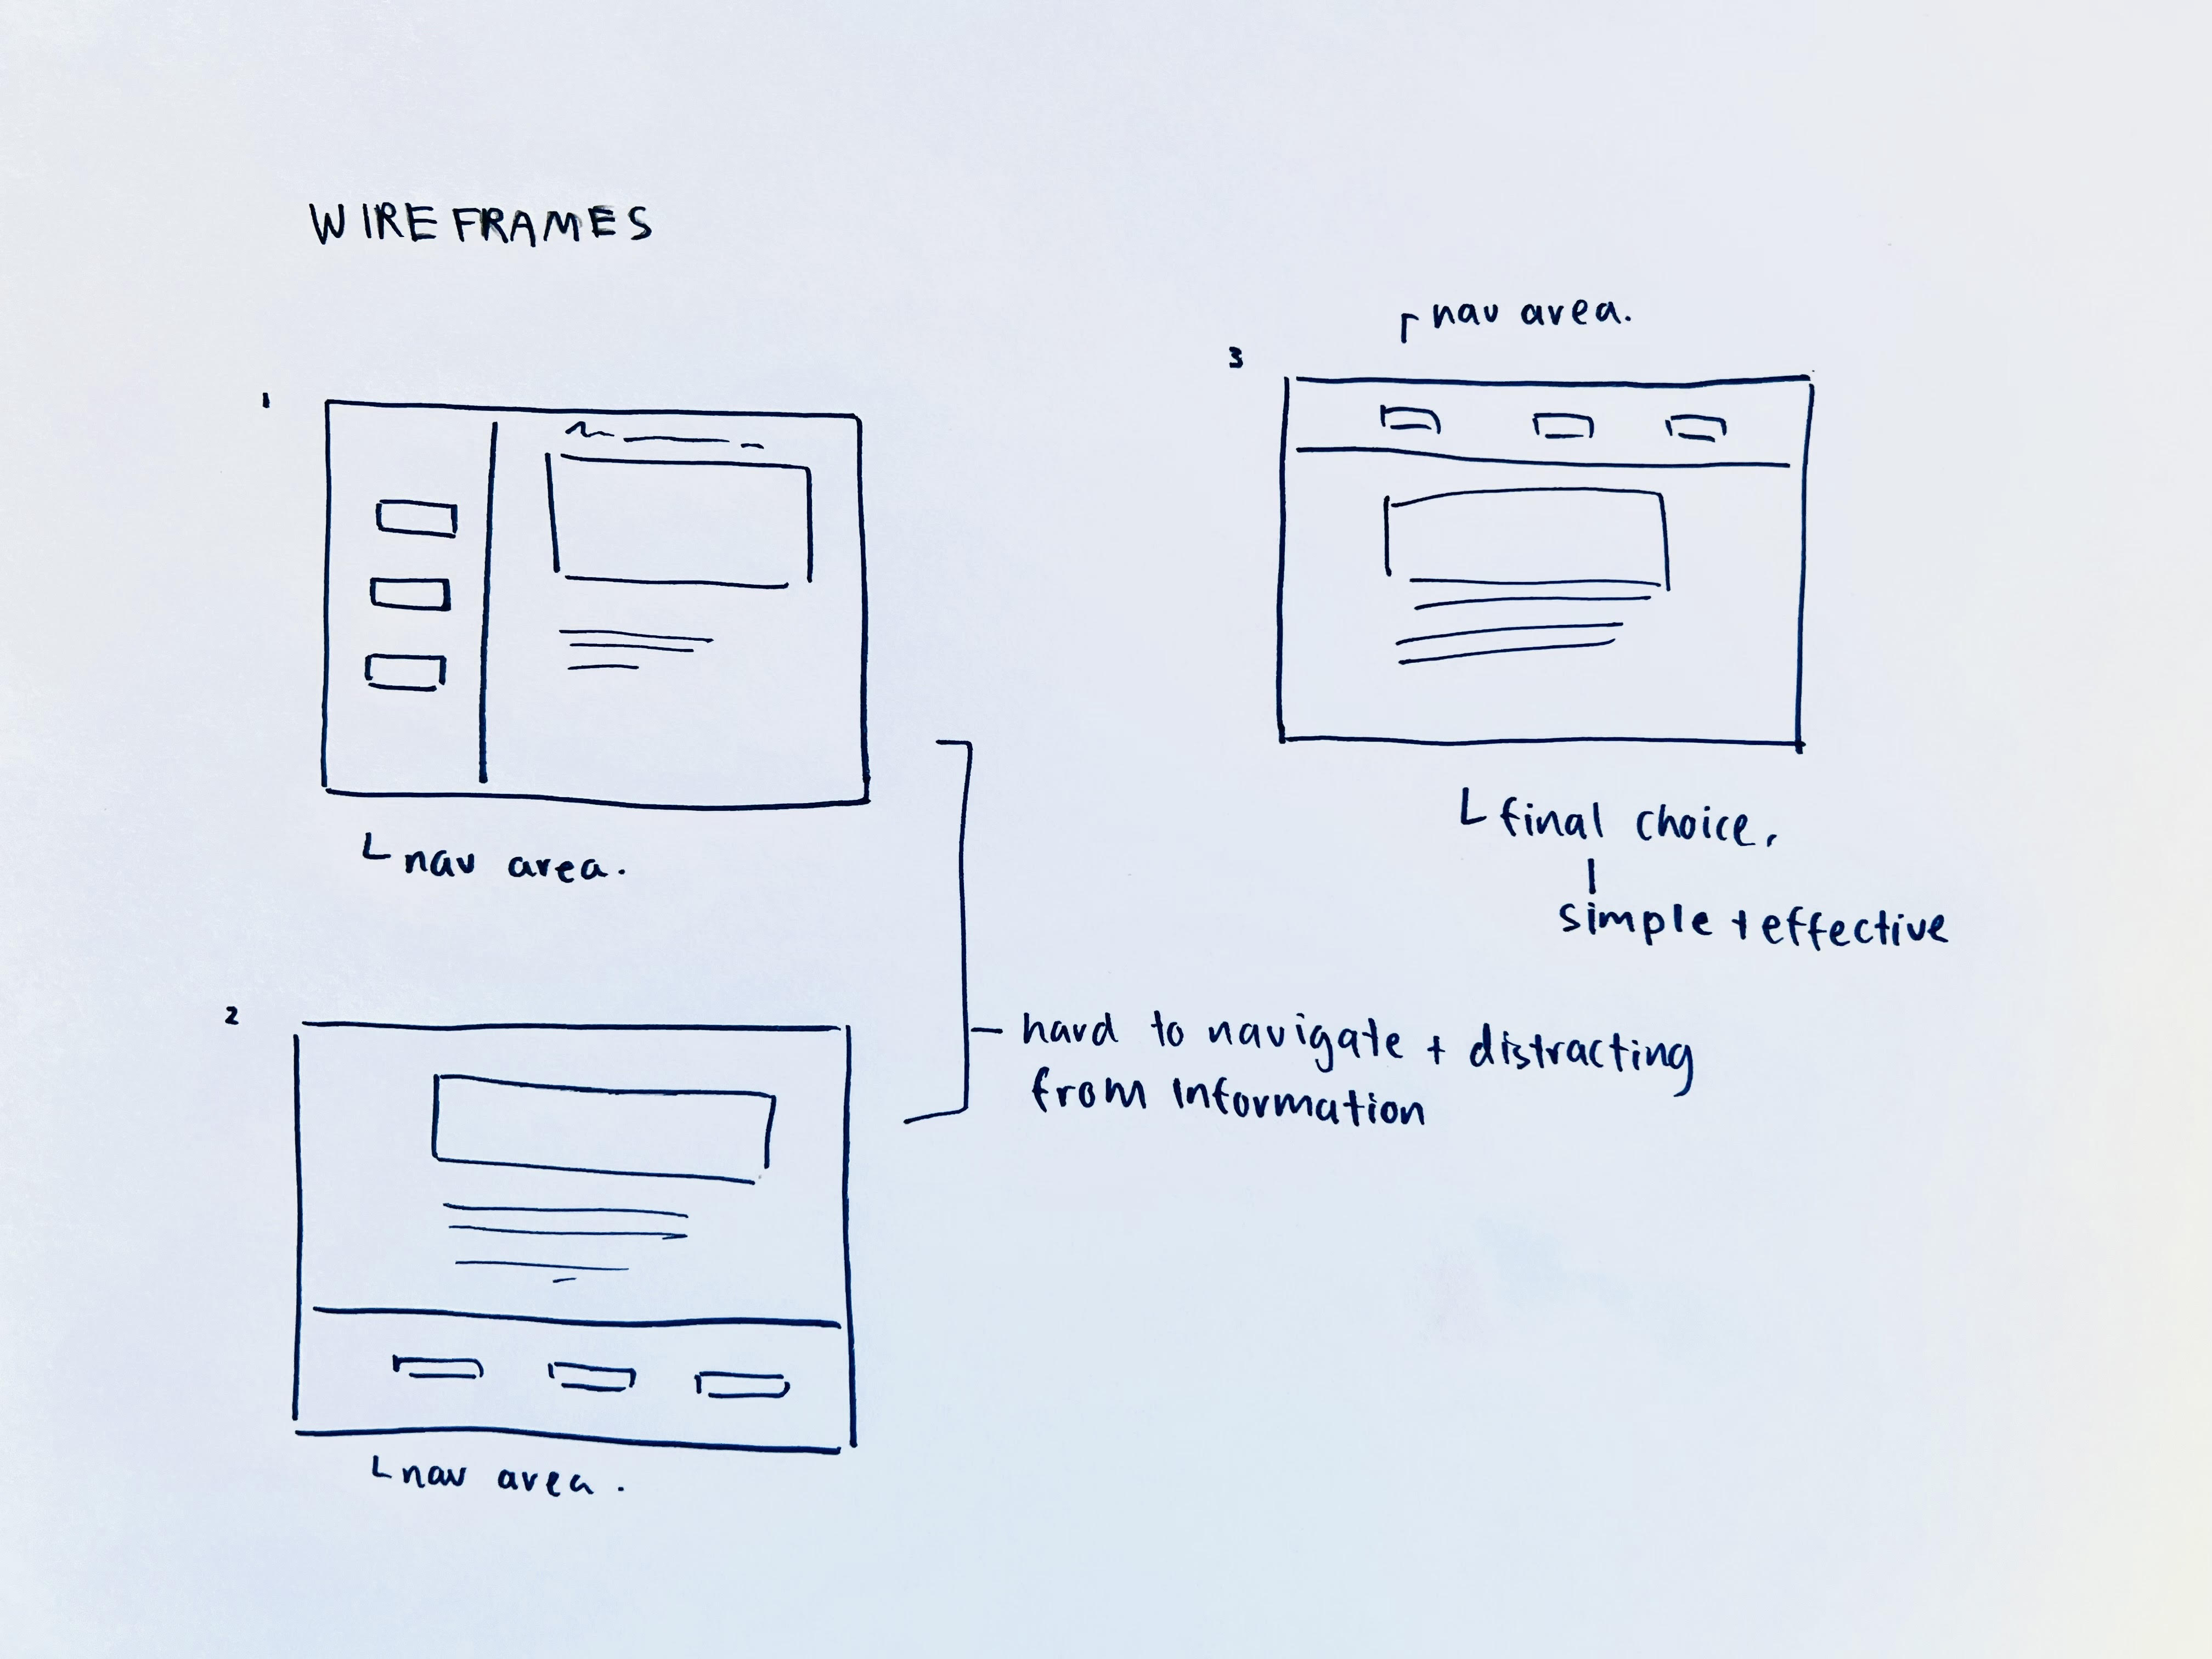 WIREFRAMES
1
nav area.
2
nav area.
hard to navigate + distracting
from information
3
nav area.
final choice.
simple + effective